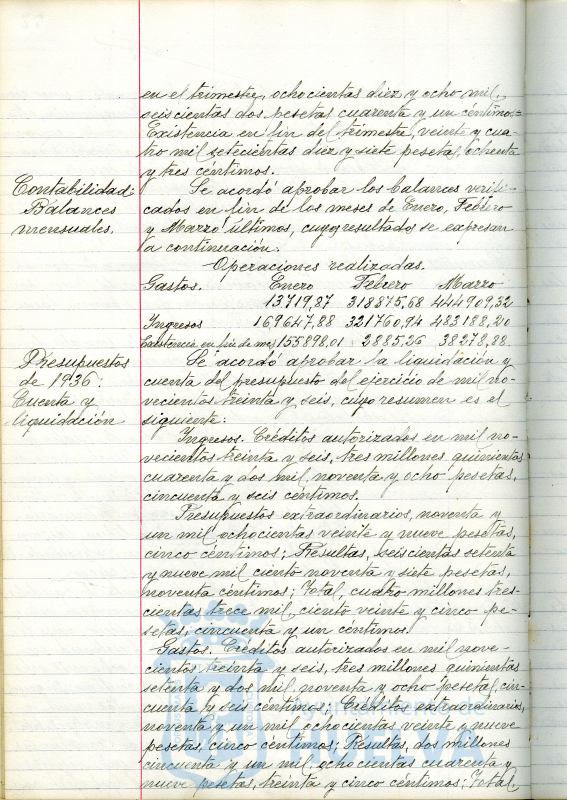 en el trimestre, ochocientas diez y ocho mil,
seiscientas dos pesetas cuarenta y un céntimos=
Existencia en fin del trimestre, veinte y cua-
tro mil setecientas diez y siete pesetas, ochenta
y tres céntimos.
Contabilidad:
Balances
mensuales.
Se acordó aprobar los balances verifi-
cados en fin de los meses de Enero, Febrero
y Marzo últimos, cuyos resultados se expresan
a continuación:
Operaciones realizadas.
Gastos. Enero Febrero Marzo
13719,87 318875,68 444909,32
Ingresos 169647,88 321760,94 483188,20
Existencia en fin de mes 155898,01 3885,26 38278,88
Presupuestos
de 1936:
Cuenta y
liquidación
Se acordó aprobar la liquidación y
cuenta del presupuesto del ejercicio de mil no-
vecientos treinta y seis, cuyo resumen es el
siguiente:
Ingresos. Créditos autorizados en mil no-
vecientos treinta y seis, tres millones quinientas
cuarenta y dos mil noventa y ocho pesetas,
cincuenta y seis céntimos.
Presupuestos extraordinarios, noventa y
un mil ochocientas veinte y nueve pesetas,
cinco céntimos; Resultas, seiscientas setenta
y nueve mil ciento noventa y siete pesetas,
noventa céntimos; Total, cuatro millones tres-
cientas trece mil ciento veinte y cinco pe-
setas, cincuenta y un céntimos.
Gastos. Créditos autorizados en mil nove-
cientos treinta y seis, tres millones quinientas
setenta y dos mil noventa y ocho pesetas, cin-
cuenta y seis céntimos; Créditos extraordinarios,
noventa y un mil ochocientas veinte y nueve
pesetas, cinco céntimos; Resultas, dos millones
cincuenta y un mil, ochocientas cuarenta y
nueve pesetas, treinta y cinco céntimos; Total,